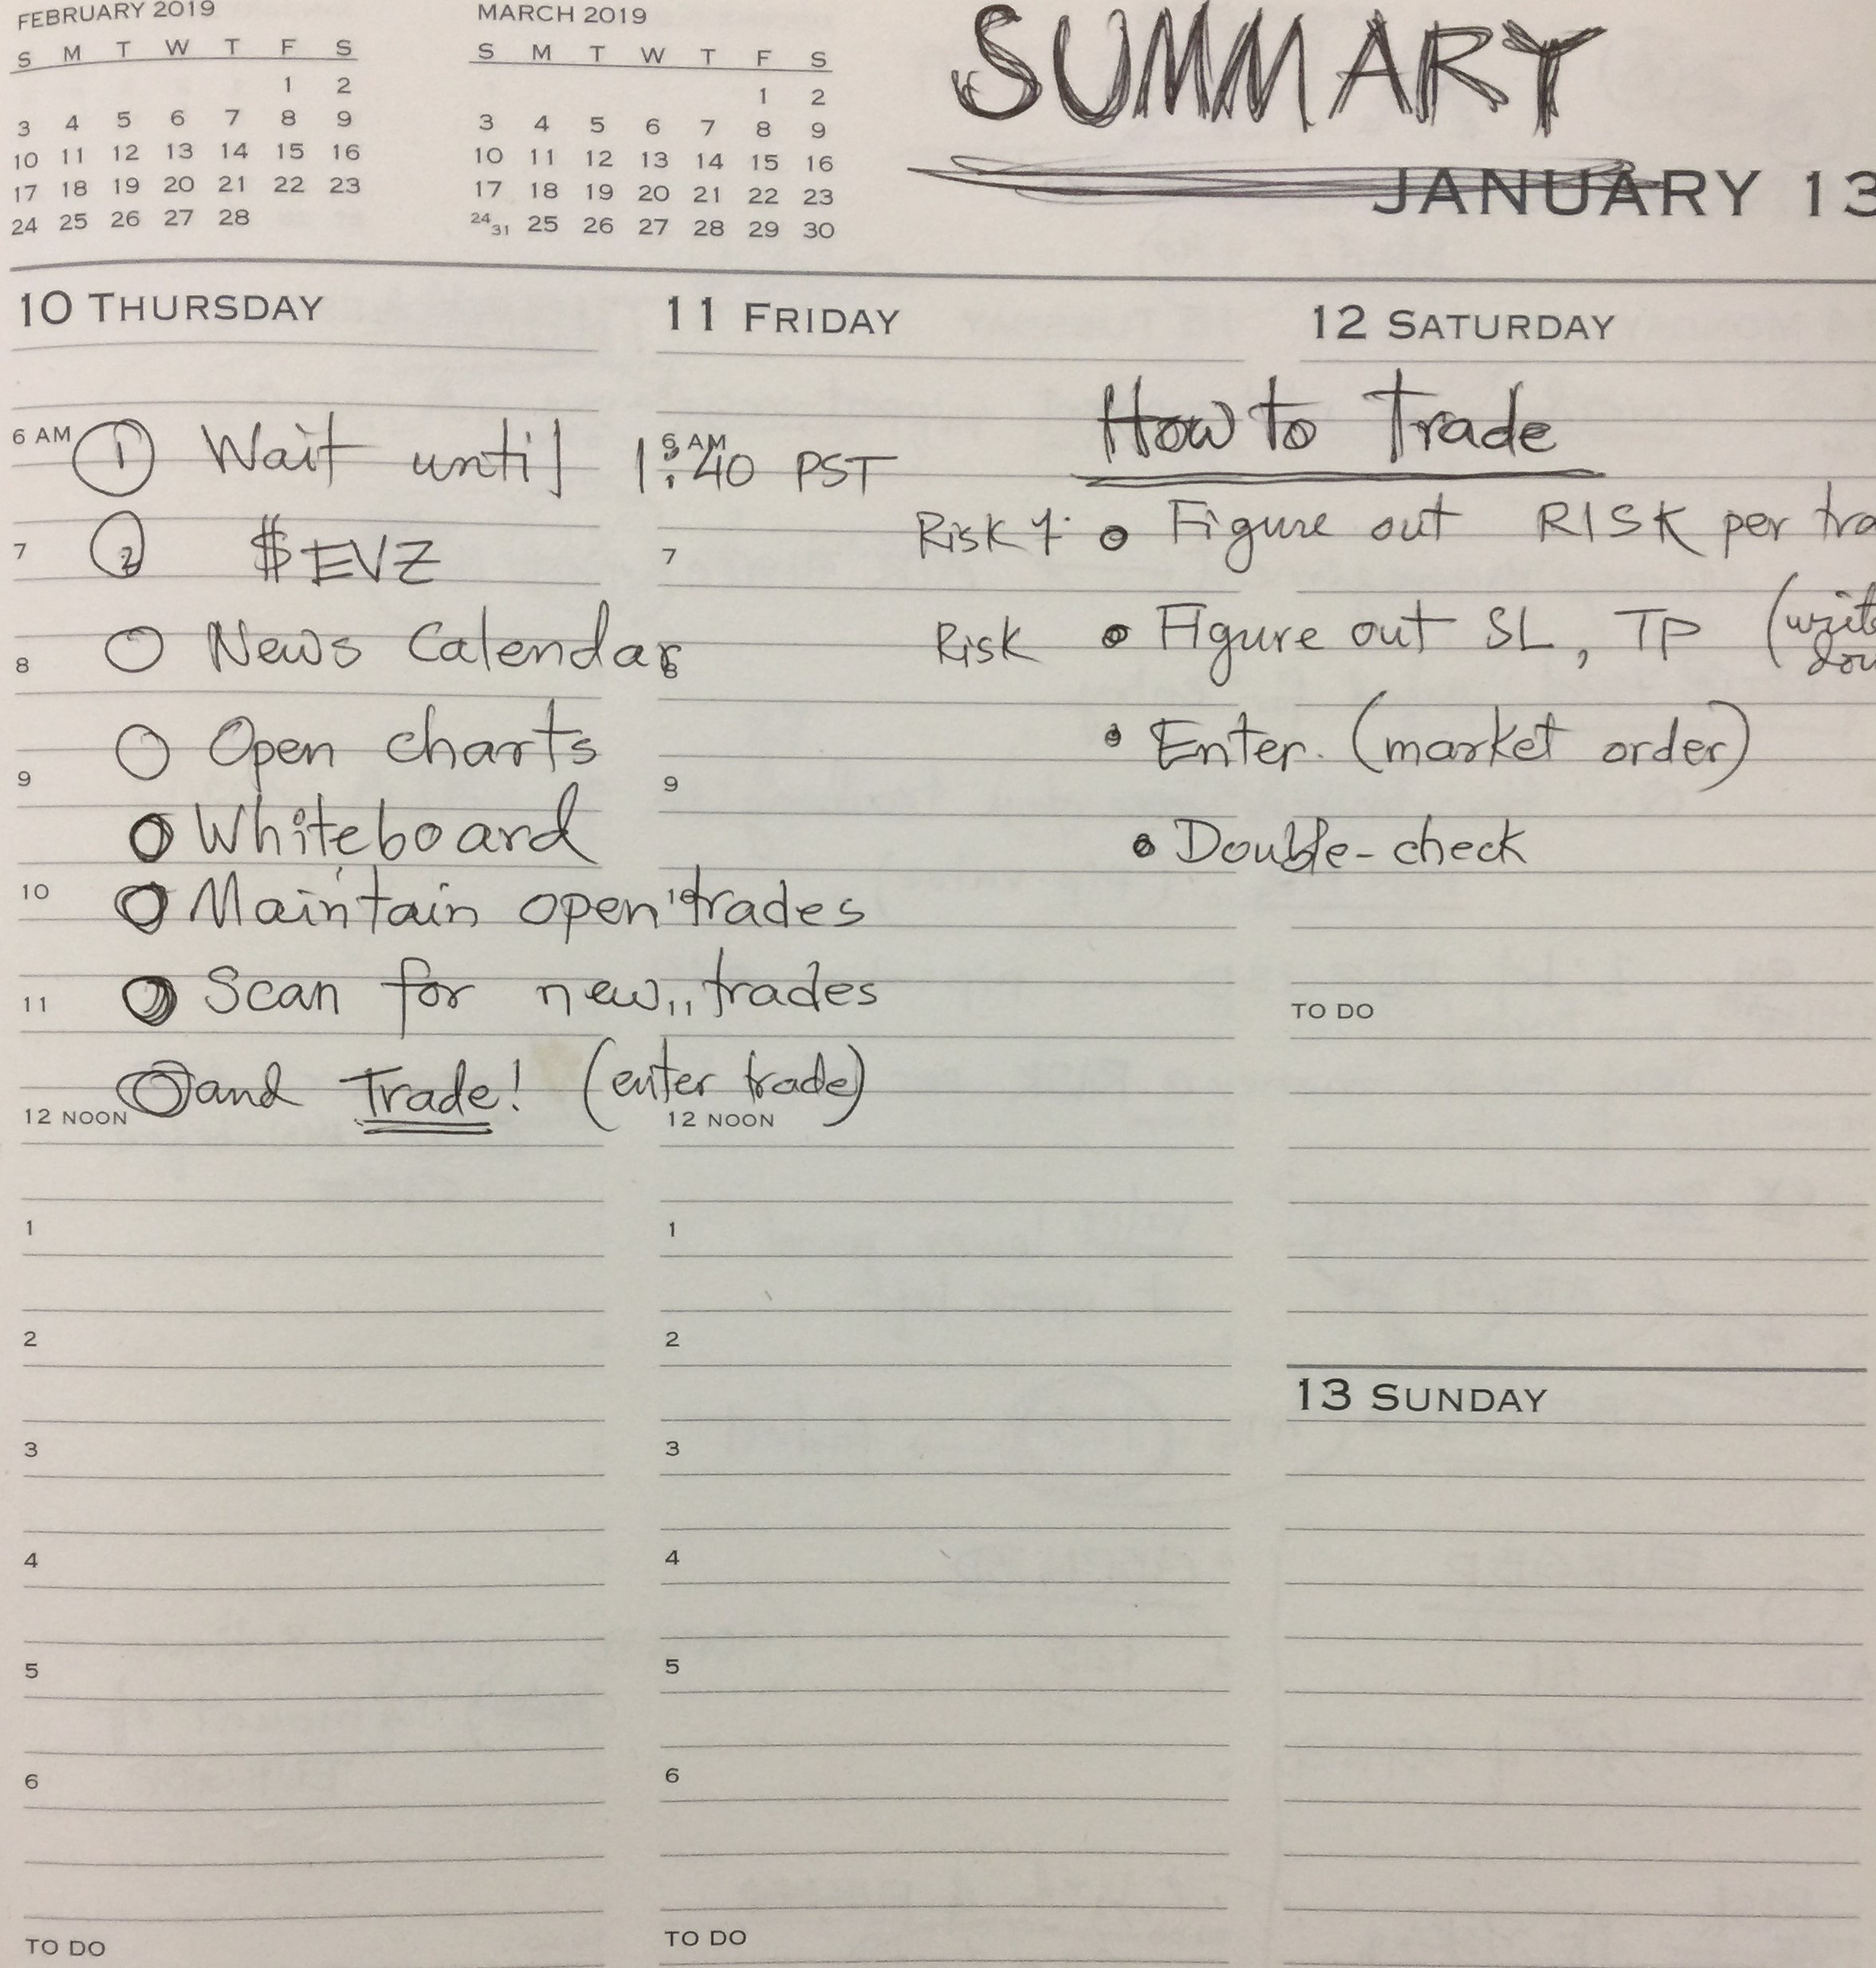 FEBRUARY 2019
S M T W T F S
1 2
3 4 5 6 7 8 9
10 11 12 13 14 15 16
17 18 19 20 21 22 23
24 25 26 27 28
MARCH 2019
S M T W T F S
1 2
3 4 5 6 7 8 9
10 11 12 13 14 15 16
17 18 19 20 21 22 23
24 31 25 26 27 28 29 30
SUMMARY
JANUARY 13
10 THURSDAY
6 AM
1 Wait until 1:40 PST
7
2 $EVZ
8
News Calendar
Open charts
9
Whiteboard
10
Maintain open trades
11
Scan for new trades
and Trade! (enter trade)
12 NOON
1
2
3
4
5
6
TO DO
11 FRIDAY
6 AM
7
8
9
10
11
12 NOON
1
2
3
4
5
6
TO DO
12 SATURDAY
How to Trade
Risk Figure out RISK per
Risk Figure out SL, TP
Enter. (market order)
Double-check
TO DO
13 SUNDAY